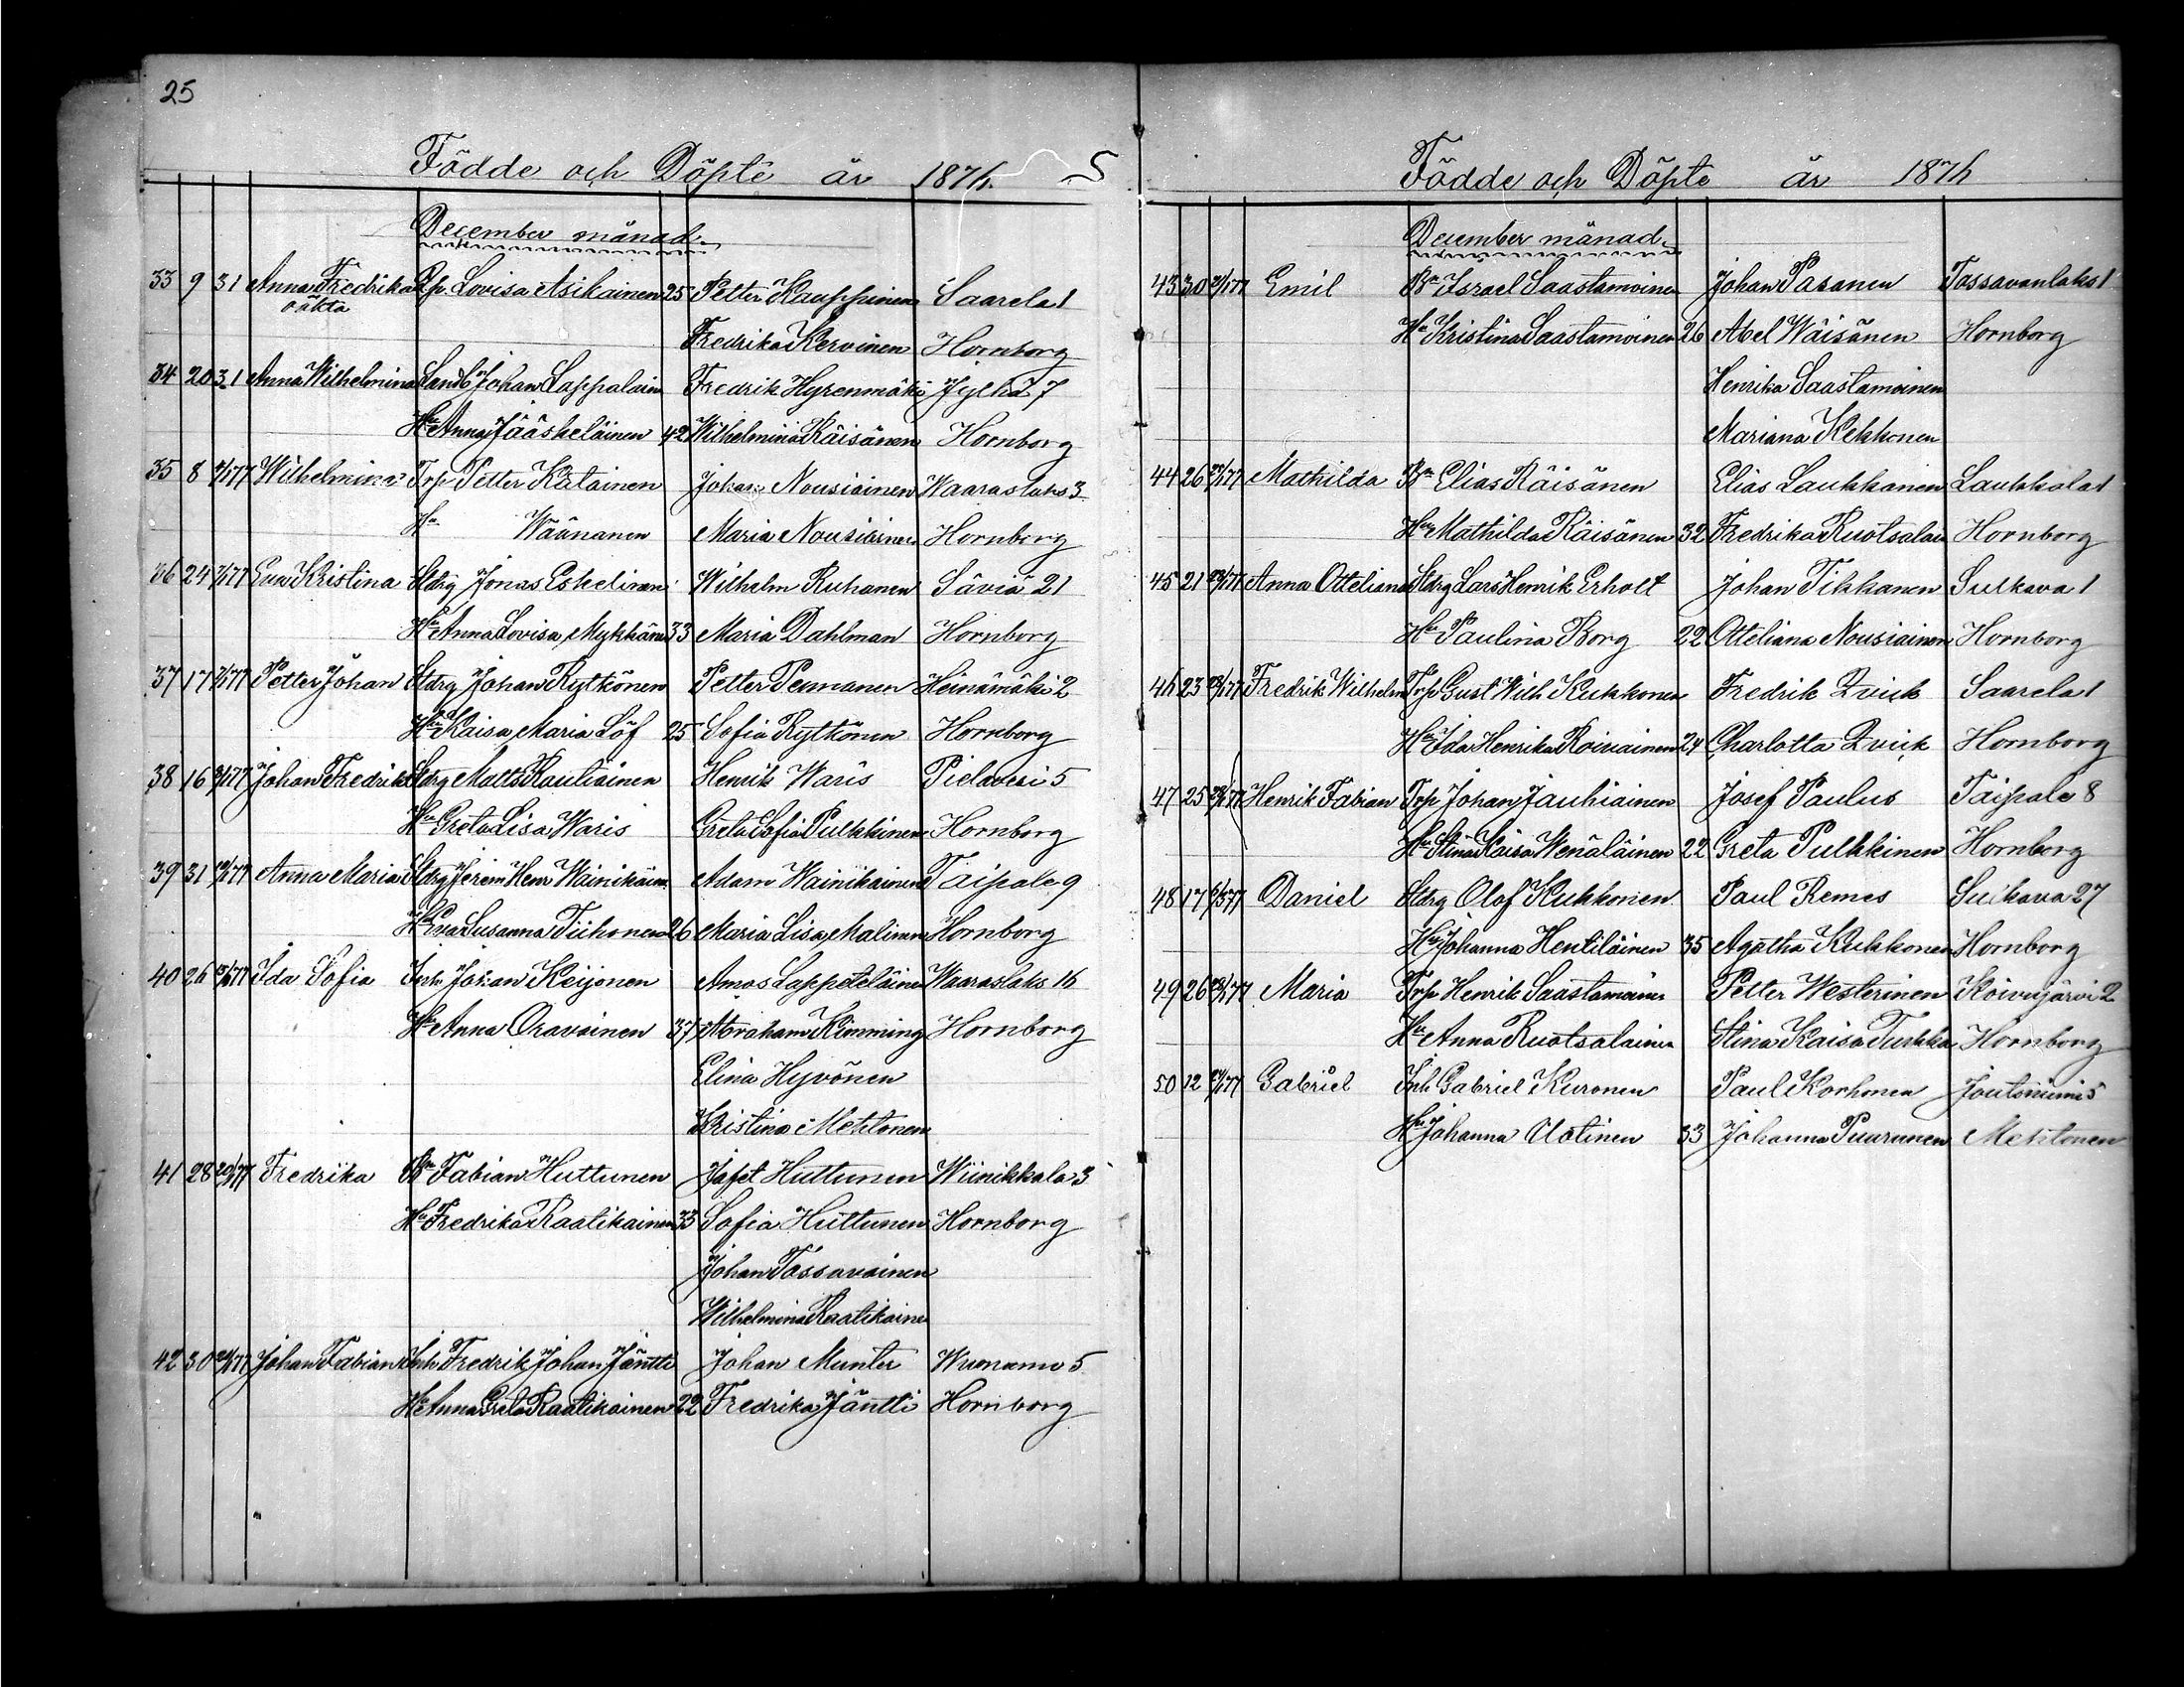 25
Födde och Döpte år 1876. 5
December månad
33 9 31 Anna Fredrika Pp. Lovisa Asikainen 25 Petter Kauppinen Saarela 1
oäkta
Fredrika Kervinen Hornborg
34 20 31 Anna Wilhelmina Landb Johan Lappalain Fredrik Hyrenmäki Jylhä 7
Hu Anna Jääskeläinen 42 Wilhelmina Räisänen Hornborg
35 8 Wilhelmina Trp Petter Katainen Johan Nousiainen Waaraslaks 3
Hu Wäänanen Maria Nousiainen Hornborg
36 24 Eva Kristina Stdrg Jonas Eskelinen Wilhelm Ruhanen Säviä 21
Hu Anna Lovisa Mykkänen 33 Maria Dahlman Hornborg
37 17 Petter Johan Stdrg Johan Rytkönen Petter Pennanen Heinämäki 2
Hu Kaisa Maria Löf 25 Sofia Rytkönen Hornborg
38 16 Johan Fredrik Stdrg Matts Rautiainen Henrik Waris Pielavesi 5
Hu Greta Lisa Waris Greta Sofia Pulkkinen Hornborg
39 31 Anna Maria Stdrg Jerem Henr Wainikain Adam Wainikainen Taipale 9
Hu Eva Susanna Tiihonen 26 Maria Lisa Malinen Hornborg
40 26 Ida Sofia Inh Johan Keijonen Amos Lappeteläinen Waaraslaks 16
Hu Anna Oravainen 37 Abraham Klemming Hornborg
Elina Hyvönen
Kristina Mehtonen
41 28 20/1 77 Fredrika Bn Fabian Huttunen Jafet Huttunen Wiinikkala 3
Hu Fredrika Raatikainen 33 Sofia Huttunen Hornborg
Johan Tossavainen
Wilhelmina Raatikaine
42 30 Johan Fabian Inh Fredrik Johan Jäntti Johan Munter Wuonamo 5
Hu Anna Greta Raatikainen 22 Fredrika Jäntti Hornborg
Födde och Döpte år 1876
December månad
43 30 Emil Bn Israel Saastamoinen Johan Pasanen Tossavanlaks 1
Hu Kristina Saastamoinen 26 Abel Wäisänen Hornborg
Henrika Saastamoinen
Mariana Kekkonen
44 26 Mathilda Bn Elias Räisänen Elias Laukkanen Laukkala 1
Hu Mathilda Räisänen 32 Fredrika Ruotsalain Hornborg
45 21 Anna Otteliana Stdrg Lars Henrik Erholt Johan Tikkanen Sulkava 1
Hu Paulina Borg 22 Otteliana Nousiainen Hornborg
46 23 Fredrik Wilhelm Trp Gust Wilh Kukkonen Fredrik Zvick Saarela 1
Hu Ida Henrika Roivainen 24 Charlotta Zvick Hornborg
47 25 Henrik Fabian Trp Johan Jauhiainen Josef Paulus Taipale 8
Hu Stina Kaisa Wenäläinen 22 Greta Pulkkinen Hornborg
48 17 Daniel Stdrg Olof Kukkonen Paul Remes Sulkava 27
Hu Johanna Hentiläinen 35 Agatha Kukkonen Hornborg
49 26 Maria Trp Henrik Saastamoinen Petter Westerinen Koivujärvi 2
Hu Anna Ruotsalainen Stina Kaisa Turkka Hornborg
50 12 Gabriel Inh Gabriel Kuronen Paul Korhonen Joutsniemi 5
Hu Johanna Uotinen 33 Johanna Puurunen Mehtonen